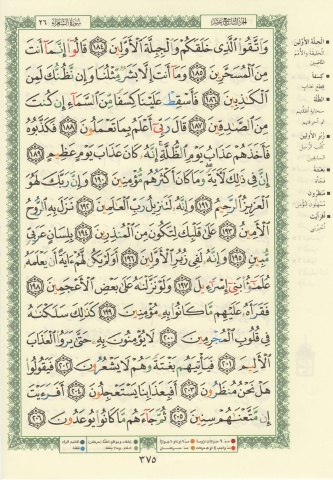 الجزء التاسع عشر
سورة الشعراء
٢٦
وَاتَّقُوا الَّذِي خَلَقَكُمْ وَالْجِبِلَّةَ الْأَوَّلِينَ ١٨٤ قَالُوا إِنَّمَا أَنتَ
مِنَ الْمُسَحَّرِينَ ١٨٥ وَمَا أَنتَ إِلَّا بَشَرٌ مِّثْلُنَا وَإِن نَّظُنُّكَ لَمِنَ
الْكَاذِبِينَ ١٨٦ فَأَسْقِطْ عَلَيْنَا كِسَفًا مِّنَ السَّمَاءِ إِن كُنتَ
مِنَ الصَّادِقِينَ ١٨٧ قَالَ رَبِّي أَعْلَمُ بِمَا تَعْمَلُونَ ١٨٨ فَكَذَّبُوهُ
فَأَخَذَهُمْ عَذَابُ يَوْمِ الظُّلَّةِ إِنَّهُ كَانَ عَذَابَ يَوْمٍ عَظِيمٍ ١٨٩
إِنَّ فِي ذَٰلِكَ لَآيَةً وَمَا كَانَ أَكْثَرُهُم مُّؤْمِنِينَ ١٩٠ وَإِنَّ رَبَّكَ لَهُوَ
الْعَزِيزُ الرَّحِيمُ ١٩١ وَإِنَّهُ لَتَنزِيلُ رَبِّ الْعَالَمِينَ ١٩٢ نَزَلَ بِهِ الرُّوحُ
الْأَمِينُ ١٩٣ عَلَىٰ قَلْبِكَ لِتَكُونَ مِنَ الْمُنذِرِينَ ١٩٤ بِلِسَانٍ عَرَبِيٍّ
مُّبِينٍ ١٩٥ وَإِنَّهُ لَفِي زُبُرِ الْأَوَّلِينَ ١٩٦ أَوَلَمْ يَكُن لَّهُمْ آيَةً أَن يَعْلَمَهُ
عُلَمَاءُ بَنِي إِسْرَائِيلَ ١٩٧ وَلَوْ نَزَّلْنَاهُ عَلَىٰ بَعْضِ الْأَعْجَمِينَ ١٩٨
فَقَرَأَهُ عَلَيْهِم مَّا كَانُوا بِهِ مُؤْمِنِينَ ١٩٩ كَذَٰلِكَ سَلَكْنَاهُ
فِي قُلُوبِ الْمُجْرِمِينَ ٢٠٠ لَا يُؤْمِنُونَ بِهِ حَتَّىٰ يَرَوُا الْعَذَابَ
الْأَلِيمَ ٢٠١ فَيَأْتِيَهُم بَغْتَةً وَهُمْ لَا يَشْعُرُونَ ٢٠٢ فَيَقُولُوا
هَلْ نَحْنُ مُنظَرُونَ ٢٠٣ أَفَبِعَذَابِنَا يَسْتَعْجِلُونَ ٢٠٤ أَفَرَأَيْتَ
إِن مَّتَّعْنَاهُمْ سِنِينَ ٢٠٥ ثُمَّ جَاءَهُم مَّا كَانُوا يُوعَدُونَ ٢٠٦
الجبلة الأولين
كسفا
الظلة
زبر الأولين
بغتة
منظرون
أفرأيت
٣٧٥